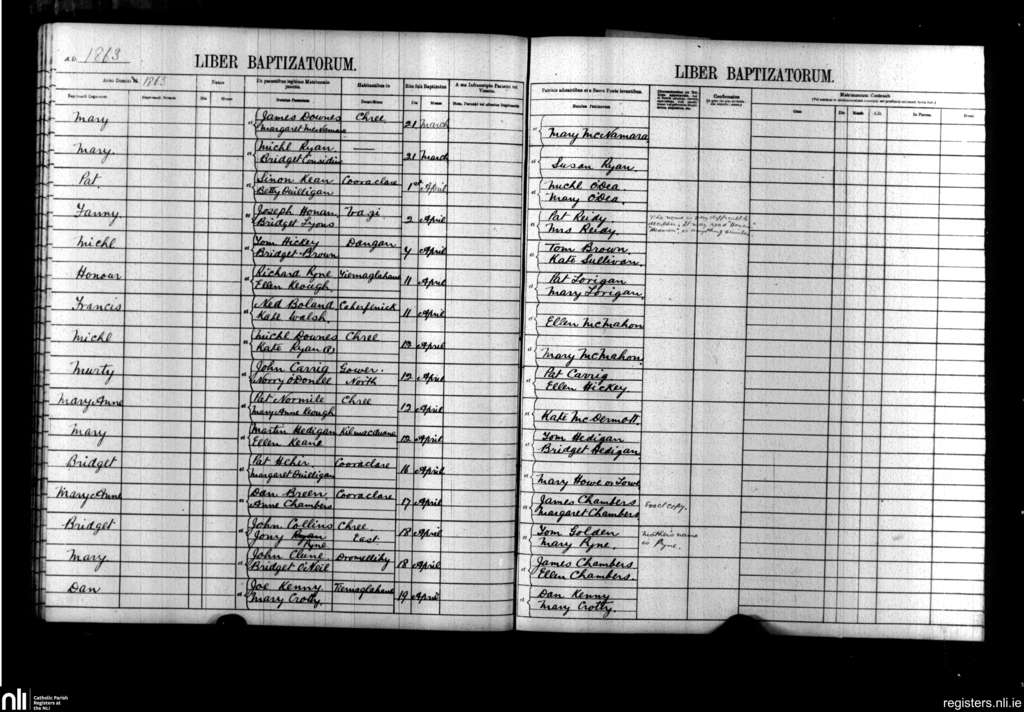 A.D. 1863
LIBER BAPTIZATORUM.
Anno Domini 18 1863
Natus
Habitantibus in
Rite fuit Baptizatus
Die Mense
Die Mense
Mary
James Downes Chree
Margaret McNamara
21 March
Mary.
Michl Ryan
Bridget Considine
21 March
Pat
Sinon Kean Cooraclare
Betty Quilligan
1st April
Fanny.
Joseph Honan
Bridget Lyons
2 April
Michl
Tom Hickey Dangan
Bridget Brown
4 April
Honour
Richard Pyne
Ellen Keough
11 April
Francis
Ned Boland
Kate Walsh.
11 April
Michl
Michl Downes Chree
Kate Ryan
12 April
Murty
John Carrig Gower.
Norry O'Donell North
12 April
Mary Anne
Pat Normile Chree
Mary Anne Keough
12 April
Mary
Martin Hedigan
Ellen Keane
12 April
Bridget
Pat Hehir Cooraclare
Margaret Quilligan
16 April
Mary Anne
Dan Breen Cooraclare
Anne Chambers
17 April
Bridget
John Collins Chree
Jony Ryan East
Pyne
18 April
Mary
John Clune
Bridget O'Neil
18 April
Dan
Joe Kenny
Mary Crotty.
19 April
LIBER BAPTIZATORUM.
Confirmatio
Matrimonium Contraxit
Cum Die Mense A.D. In Paroecia
Mary McNamara
Susan Ryan.
Michl O'Dea
Mary O'Dea.
Pat Reidy
Mrs Reidy.
Tom Brown
Kate Sullivan.
Pat Lorigan
Mary Lorigan.
Ellen McMahon
Mary McMahon.
Pat Carrig
Ellen Hickey
Kate McDermott.
Tom Hedigan
Bridget Hedigan
Mary Howe or Lowe
James Chambers
Margaret Chambers
Exact copy.
Tom Golden
Mary Pyne.
Mother's name
is Pyne.
James Chambers
Ellen Chambers.
Dan Kenny
Mary Crotty.
nli
Catholic Parish
Registers at
the NLI
registers.nli.ie